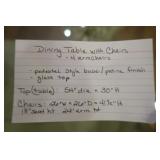 Dining Table with Chairs
4 armchairs
- pedestal style base/ finish
- glass top
Top (table) 54" dia = 30" H
Chairs: 26"W = 26"D = H
18" seat ht 26" arm ht